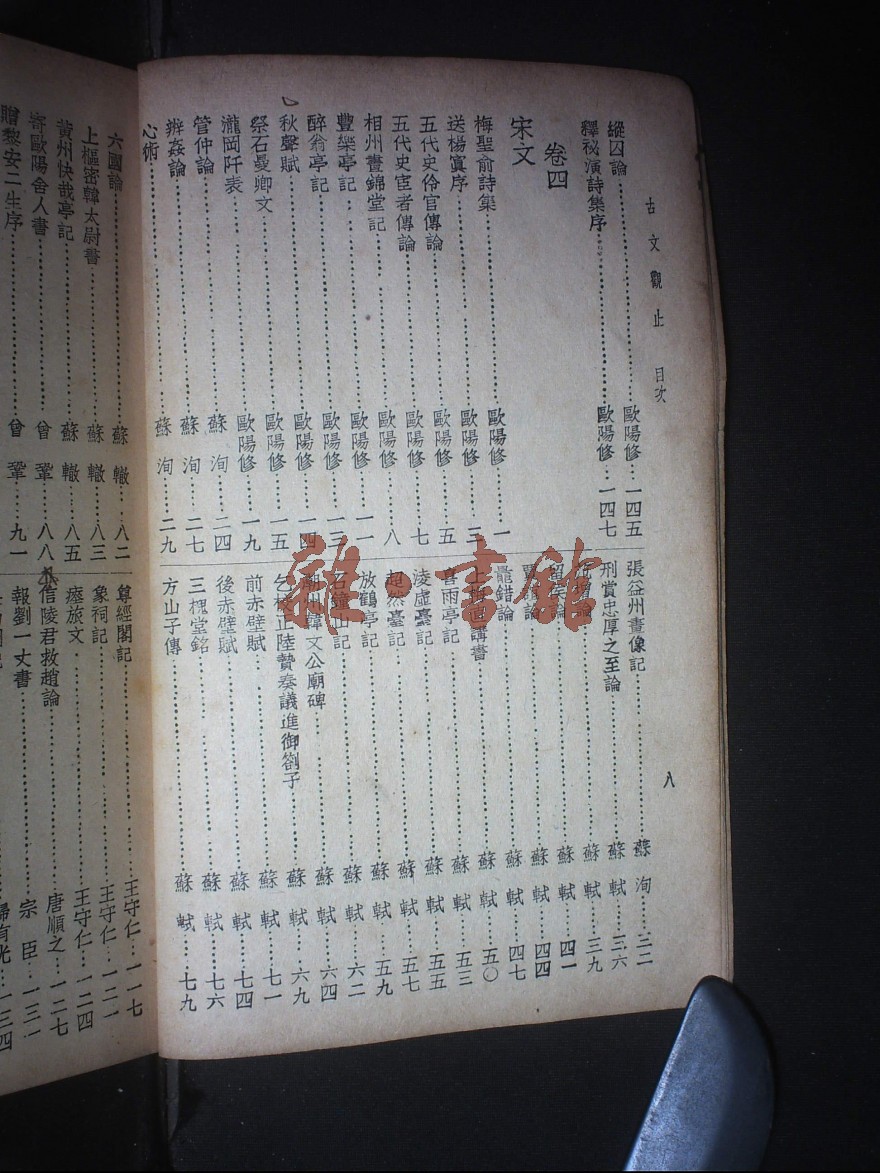 古文觀止 目次
八
縱囚論 歐陽修 一四五
釋祕演詩集序 歐陽修 一四七
卷四
宋文
梅聖俞詩集 歐陽修 一
送楊寘序 歐陽修 三
五代史伶官傳論 歐陽修 五
五代史宦者傳論 歐陽修 七
相州晝錦堂記 歐陽修 八
豐樂亭記 歐陽修 一一
醉翁亭記 歐陽修 一三
秋聲賦 歐陽修 一四
祭石曼卿文 歐陽修 一五
瀧岡阡表 歐陽修 一九
管仲論 蘇洵 二四
辨姦論 蘇洵 二七
心術 蘇洵 二九
張益州畫像記 蘇洵 三二
刑賞忠厚之至論 蘇軾 三六
論 蘇軾 三九
留侯論 蘇軾 四一
論 蘇軾 四四
鼂錯論 蘇軾 四七
上梅直講書 蘇軾 五〇
喜雨亭記 蘇軾 五三
淩虛臺記 蘇軾 五五
超然臺記 蘇軾 五七
放鶴亭記 蘇軾 五九
石鐘山記 蘇軾 六二
潮州韓文公廟碑 蘇軾 六四
乞校正陸贄奏議進御劄子 蘇軾 六九
前赤壁賦 蘇軾 七一
後赤壁賦 蘇軾 七四
三槐堂銘 蘇軾 七六
方山子傳 蘇軾 七九
六國論 蘇轍 八二
上樞密韓太尉書 蘇轍 八三
黃州快哉亭記 蘇轍 八五
寄歐陽舍人書 曾鞏 八八
贈黎安二生序 曾鞏 九一
尊經閣記 王守仁 一一七
象祠記 王守仁 一二一
瘞旅文 王守仁 一二四
信陵君救趙論 唐順之 一二七
報劉一丈書 宗臣 一三一
歸有光 一三四
雜·書館